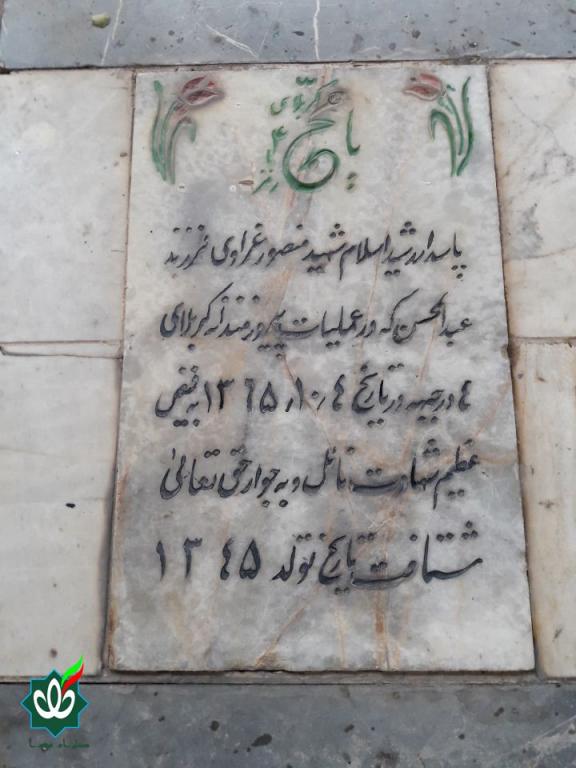 کربلای
۴
پاسدار رشید اسلام شهید منصور غراوی فرزند
عبدالحسن که در عملیات پیروزمندانه کربلای
۴ در جبهه در تاریخ ۱۳۶۵٫۱۰٫۴ به فیض
عظیم شهادت نائل و به جوار حق تعالی
شتافت تاریخ تولد ۱۳۴۵